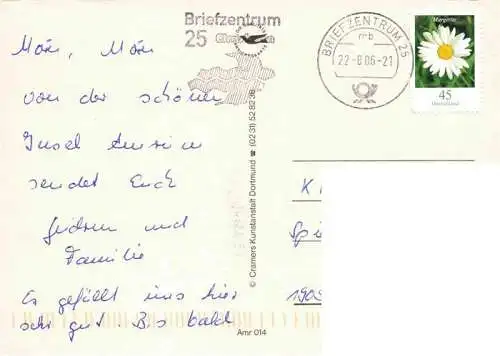 Briefzentrum
25
BRIEFZENTRUM 25
mb
22-8.06-21
Margerite
45
Deutschland
Moin, Moin
von der schönen
Insel Amrum
sendet Euch
und
Familie
Es gefällt uns hier
sehr gut. Bis bald
© Cramers Kunstanstalt Dortmund ☎ (02 31) 52 82 38
Amr 014
K
Spi